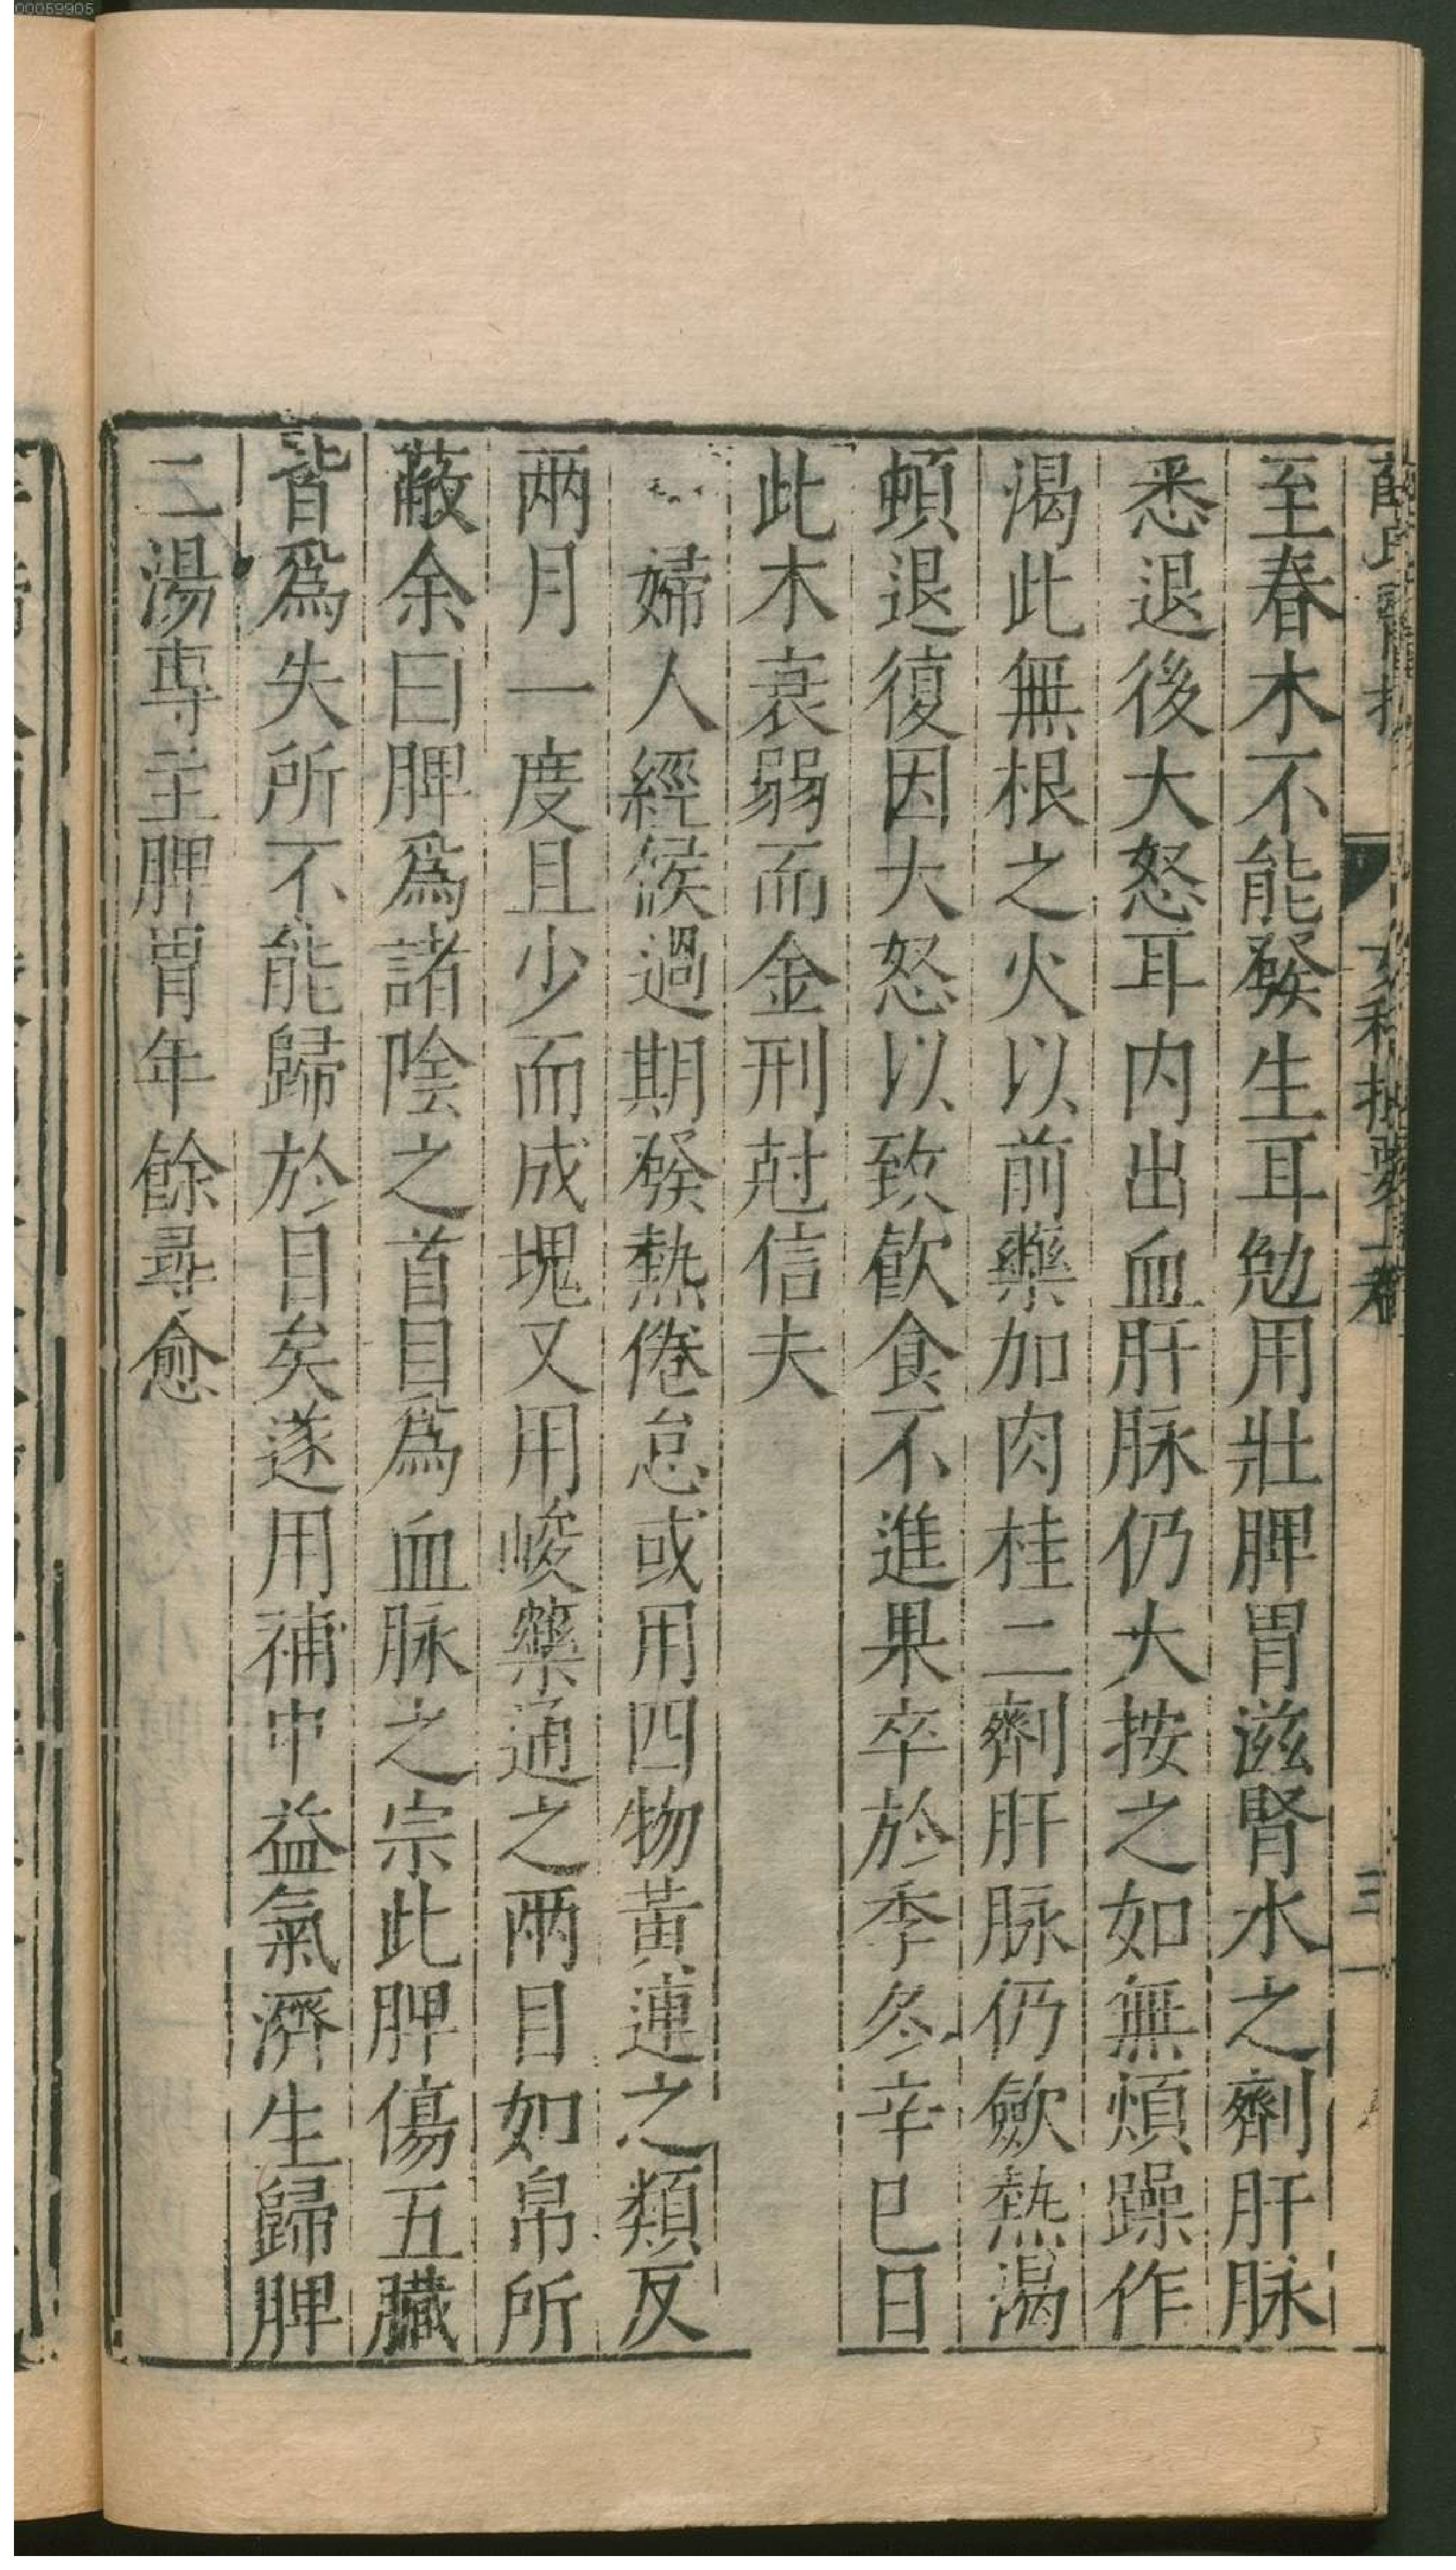 00059905
至春木不能發生耳勉用壯脾胃滋腎水之劑肝脉
悉退後大怒耳内出血肝脉仍大按之如無煩躁作
渴此無根之火以前藥加肉桂二劑肝脉仍歛熱渴
頓退復因大怒以致飲食不進果卒於季冬辛巳日
此木衰弱而金刑尅信夫
一婦人經候過期發熱倦怠或用四物黃連之類反
兩月一度且少而成塊又用峻藥通之兩目如帛所
蔽余曰脾爲諸陰之首目爲血脉之宗此脾傷五臟
皆爲失所不能歸於目矣遂用補中益氣濟生歸脾
二湯専主脾胃年餘尋愈